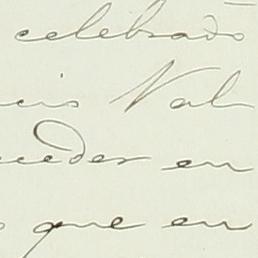 celebrado
cis Val
ceder en
que en